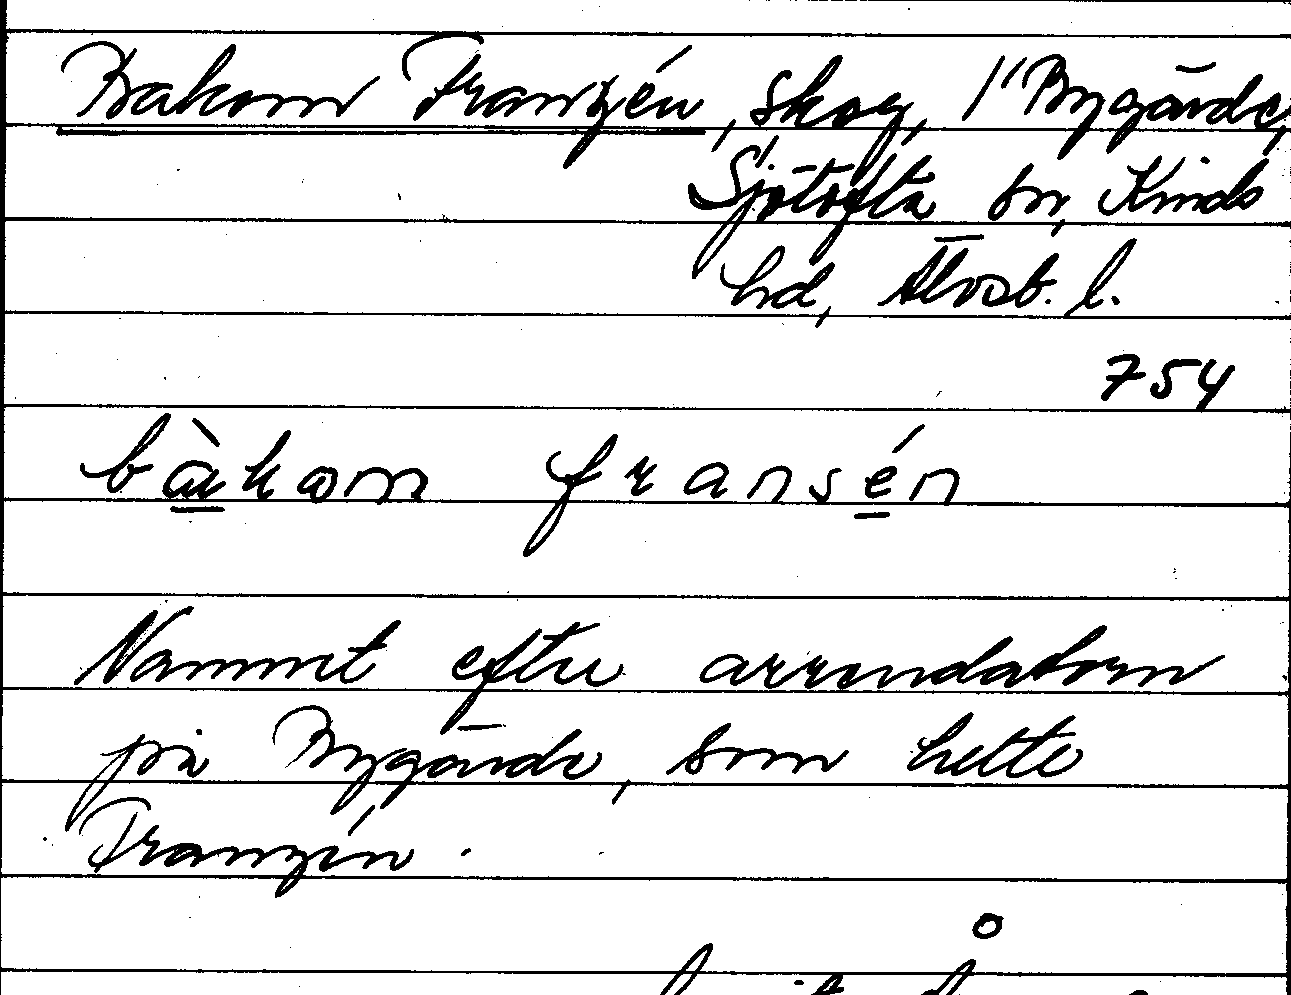 Bakom Franzén, skog, 1" Bygärde,
Sjötofta sn, Kinds
hd, Älvsb. l.
754
bàkom fransén
Namnet efter arrendatorn
på Bygärde, som hette
Franzén.